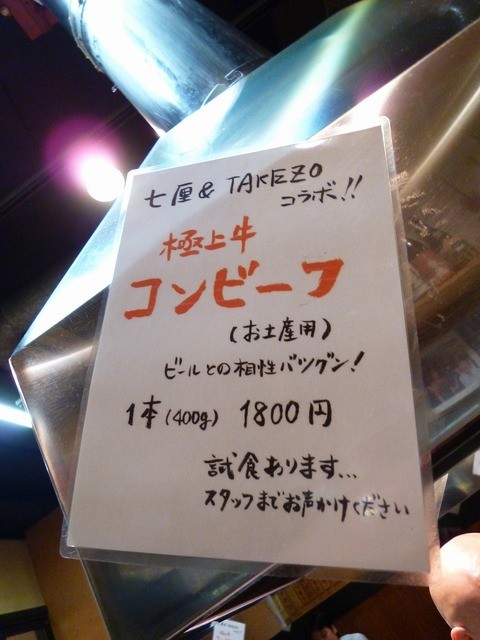 七厘 & TAKEZO
コラボ!!
極上牛
コンビーフ
(お土産用)
ビールとの相性バツグン!
1本(400g) 1800円
試食あります...
スタッフまでお声かけください